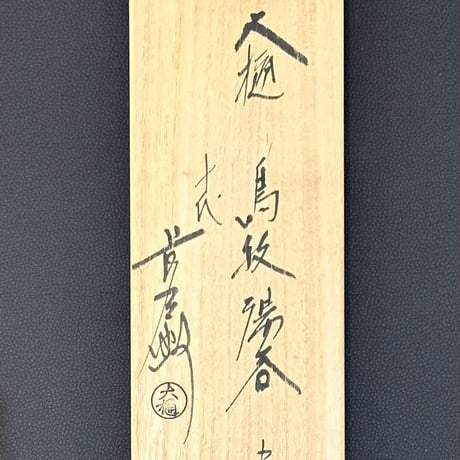 大樋 鳥紋 湯呑
十代 長左衛門
大樋